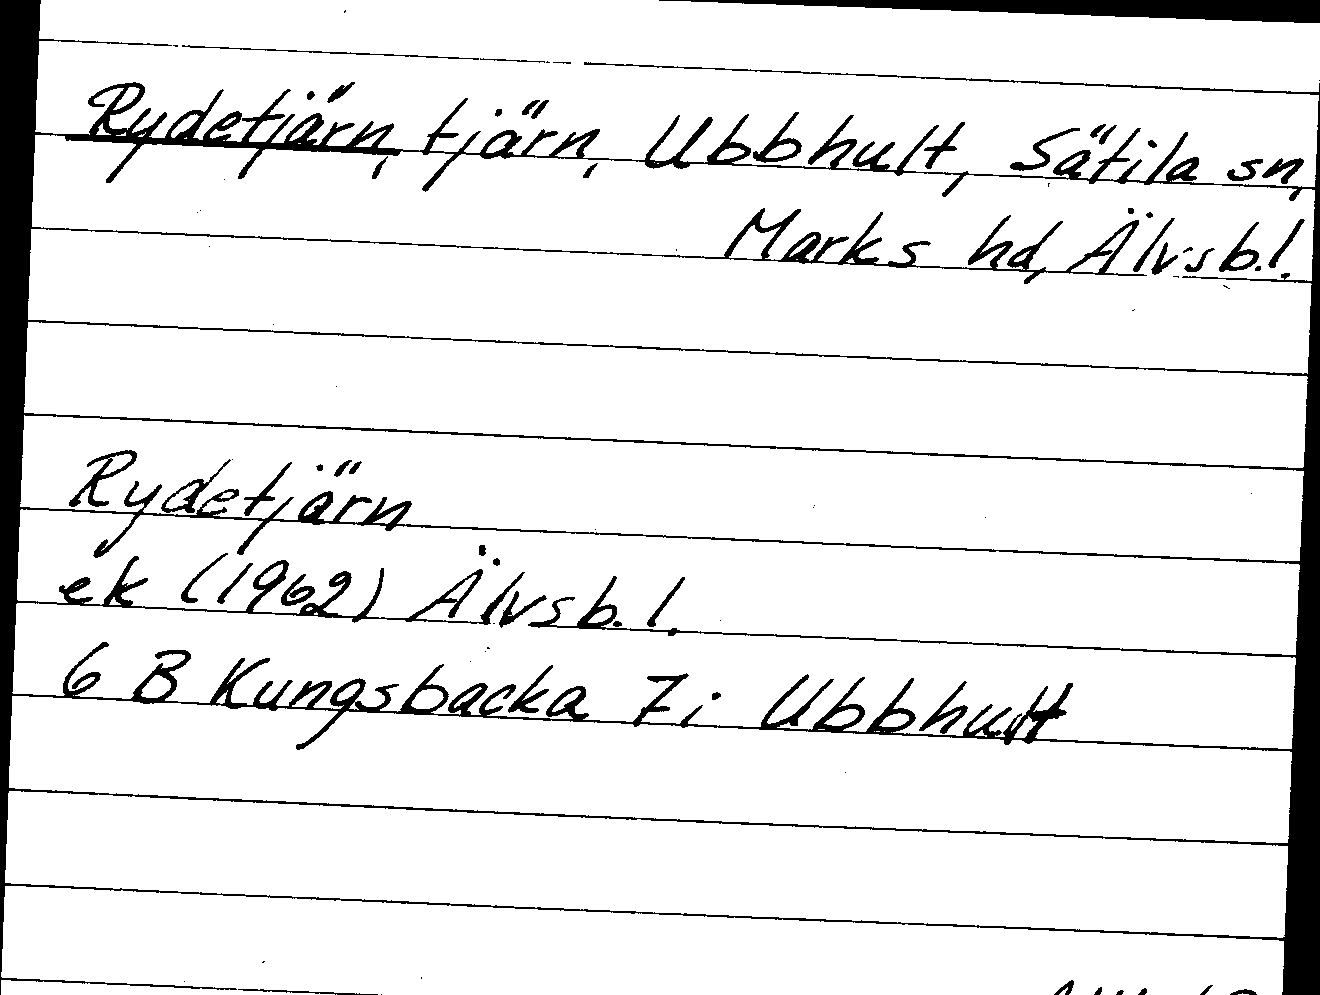 Rydetjärn, tjärn, Ubbhult, Sätila sn,
Marks hd, Älvsb.l.
Rydetjärn
ek (1962) Älvsb.l.
6 B Kungsbacka 7i Ubbhult